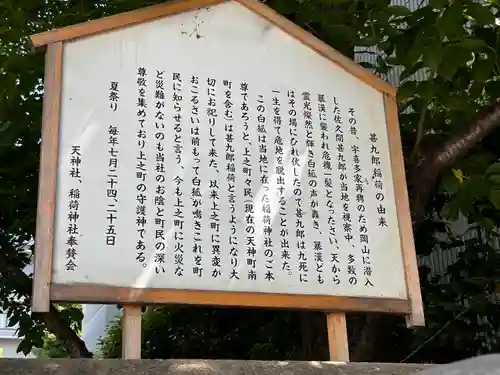 甚九郎稲荷の由来
その昔、宇喜多家再興のため岡山に潜入
した佐久間甚九郎が当地を視察中、多数の
暴漢に襲われ危機一髪のとき、天から
霊光燦然と輝き白狐の声が轟き、暴漢ども
はその場にひれ伏したので甚九郎は九死に
一生を得て危地を脱出することが出来た。
この白狐は当地に在った稲荷神社のご本
尊であろうと、上之町々民(現在の天神町南
町を含む)は甚九郎稲荷と言うようになり大
切にお祀りして来た、以来上之町に異変が
おこるさいは前もって白狐が鳴きこれを町
民に知らせると言う、今も上之町に火災な
ど災難がないのも当社のお陰と町民の深い
尊敬を集めており上之町の守護神である。
夏祭り 毎年七月二十四、二十五日
天神社、稲荷神社奉賛会